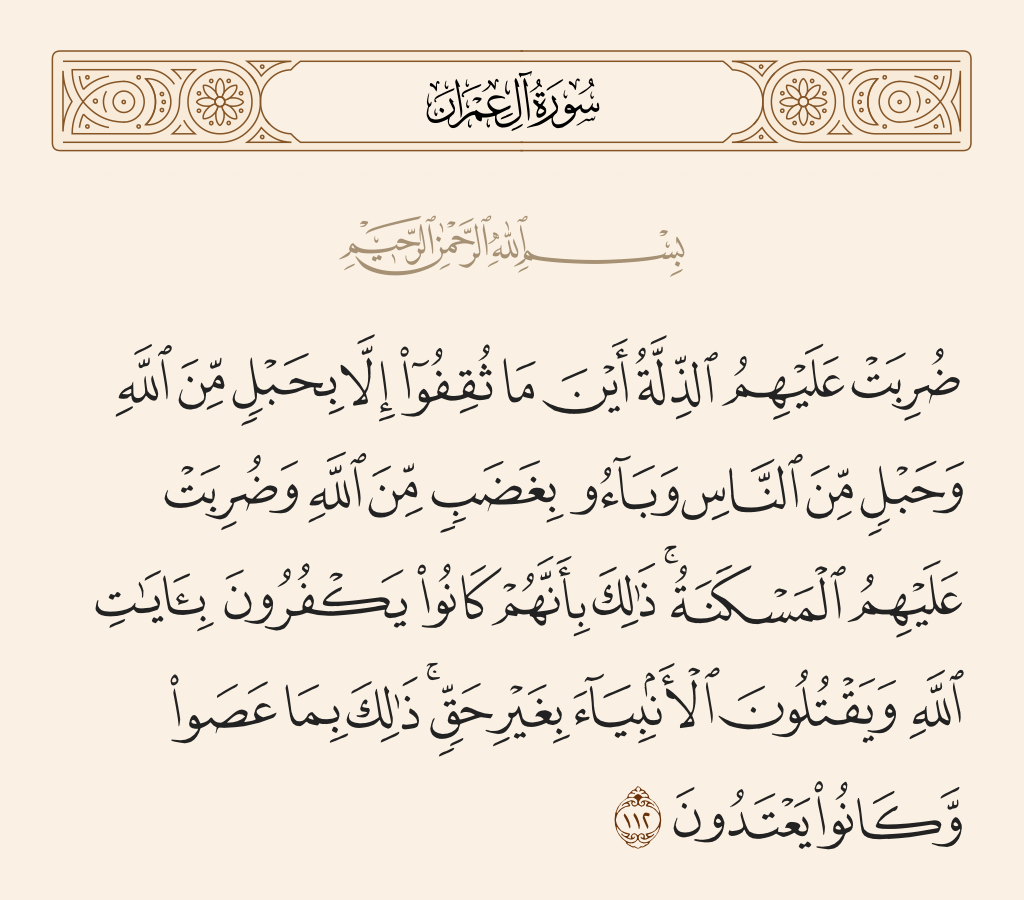 سُورَةُ آلِ عِمْرَانَ
بِسْمِ ٱللَّهِ ٱلرَّحْمَٰنِ ٱلرَّحِيمِ
ضُرِبَتْ عَلَيْهِمُ ٱلذِّلَّةُ أَيْنَ مَا ثُقِفُوٓا۟ إِلَّا بِحَبْلٍ مِّنَ ٱللَّهِ
وَحَبْلٍ مِّنَ ٱلنَّاسِ وَبَآءُو بِغَضَبٍ مِّنَ ٱللَّهِ وَضُرِبَتْ
عَلَيْهِمُ ٱلْمَسْكَنَةُ ۚ ذَٰلِكَ بِأَنَّهُمْ كَانُوا۟ يَكْفُرُونَ بِـَٔايَـٰتِ
ٱللَّهِ وَيَقْتُلُونَ ٱلْأَنۢبِيَآءَ بِغَيْرِ حَقٍّ ۚ ذَٰلِكَ بِمَا عَصَوا۟
وَّكَانُوا۟ يَعْتَدُونَ ١١٢